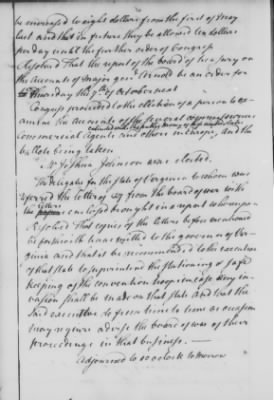 be increased to eight dollars from the first of May
last and that in future they be allowed ten dollars
per day until the further order of Congress
Resolved That the report of the board of treasury on
the accounts of major genl Arnold be an order for
Thursday the 7th of October next
Congress proceeded to the election of a person to ex-
amine the accounts of the several commissioners
commercial agents and others in Europe, and the
ballots being taken
Mr Joshua Johnson was elected.
The delegates for the state of Virginia to whom was
referred the letter of 27 from the board of war with
the letters enclosed brought in a report whereupon
Resolved That copies of the letters before mentioned
be forthwith transmitted to the governor of Vir-
ginia and that it be recommended to the executive
of that state to superintend the stationing & safe
keeping of the convention troops in case any in-
vasion shall be made on that state and that the
said executive do from time to time as occasion
may require advise the board of war of their
proceedings in that business.—
Adjourned to 10 o Clock to Morrow